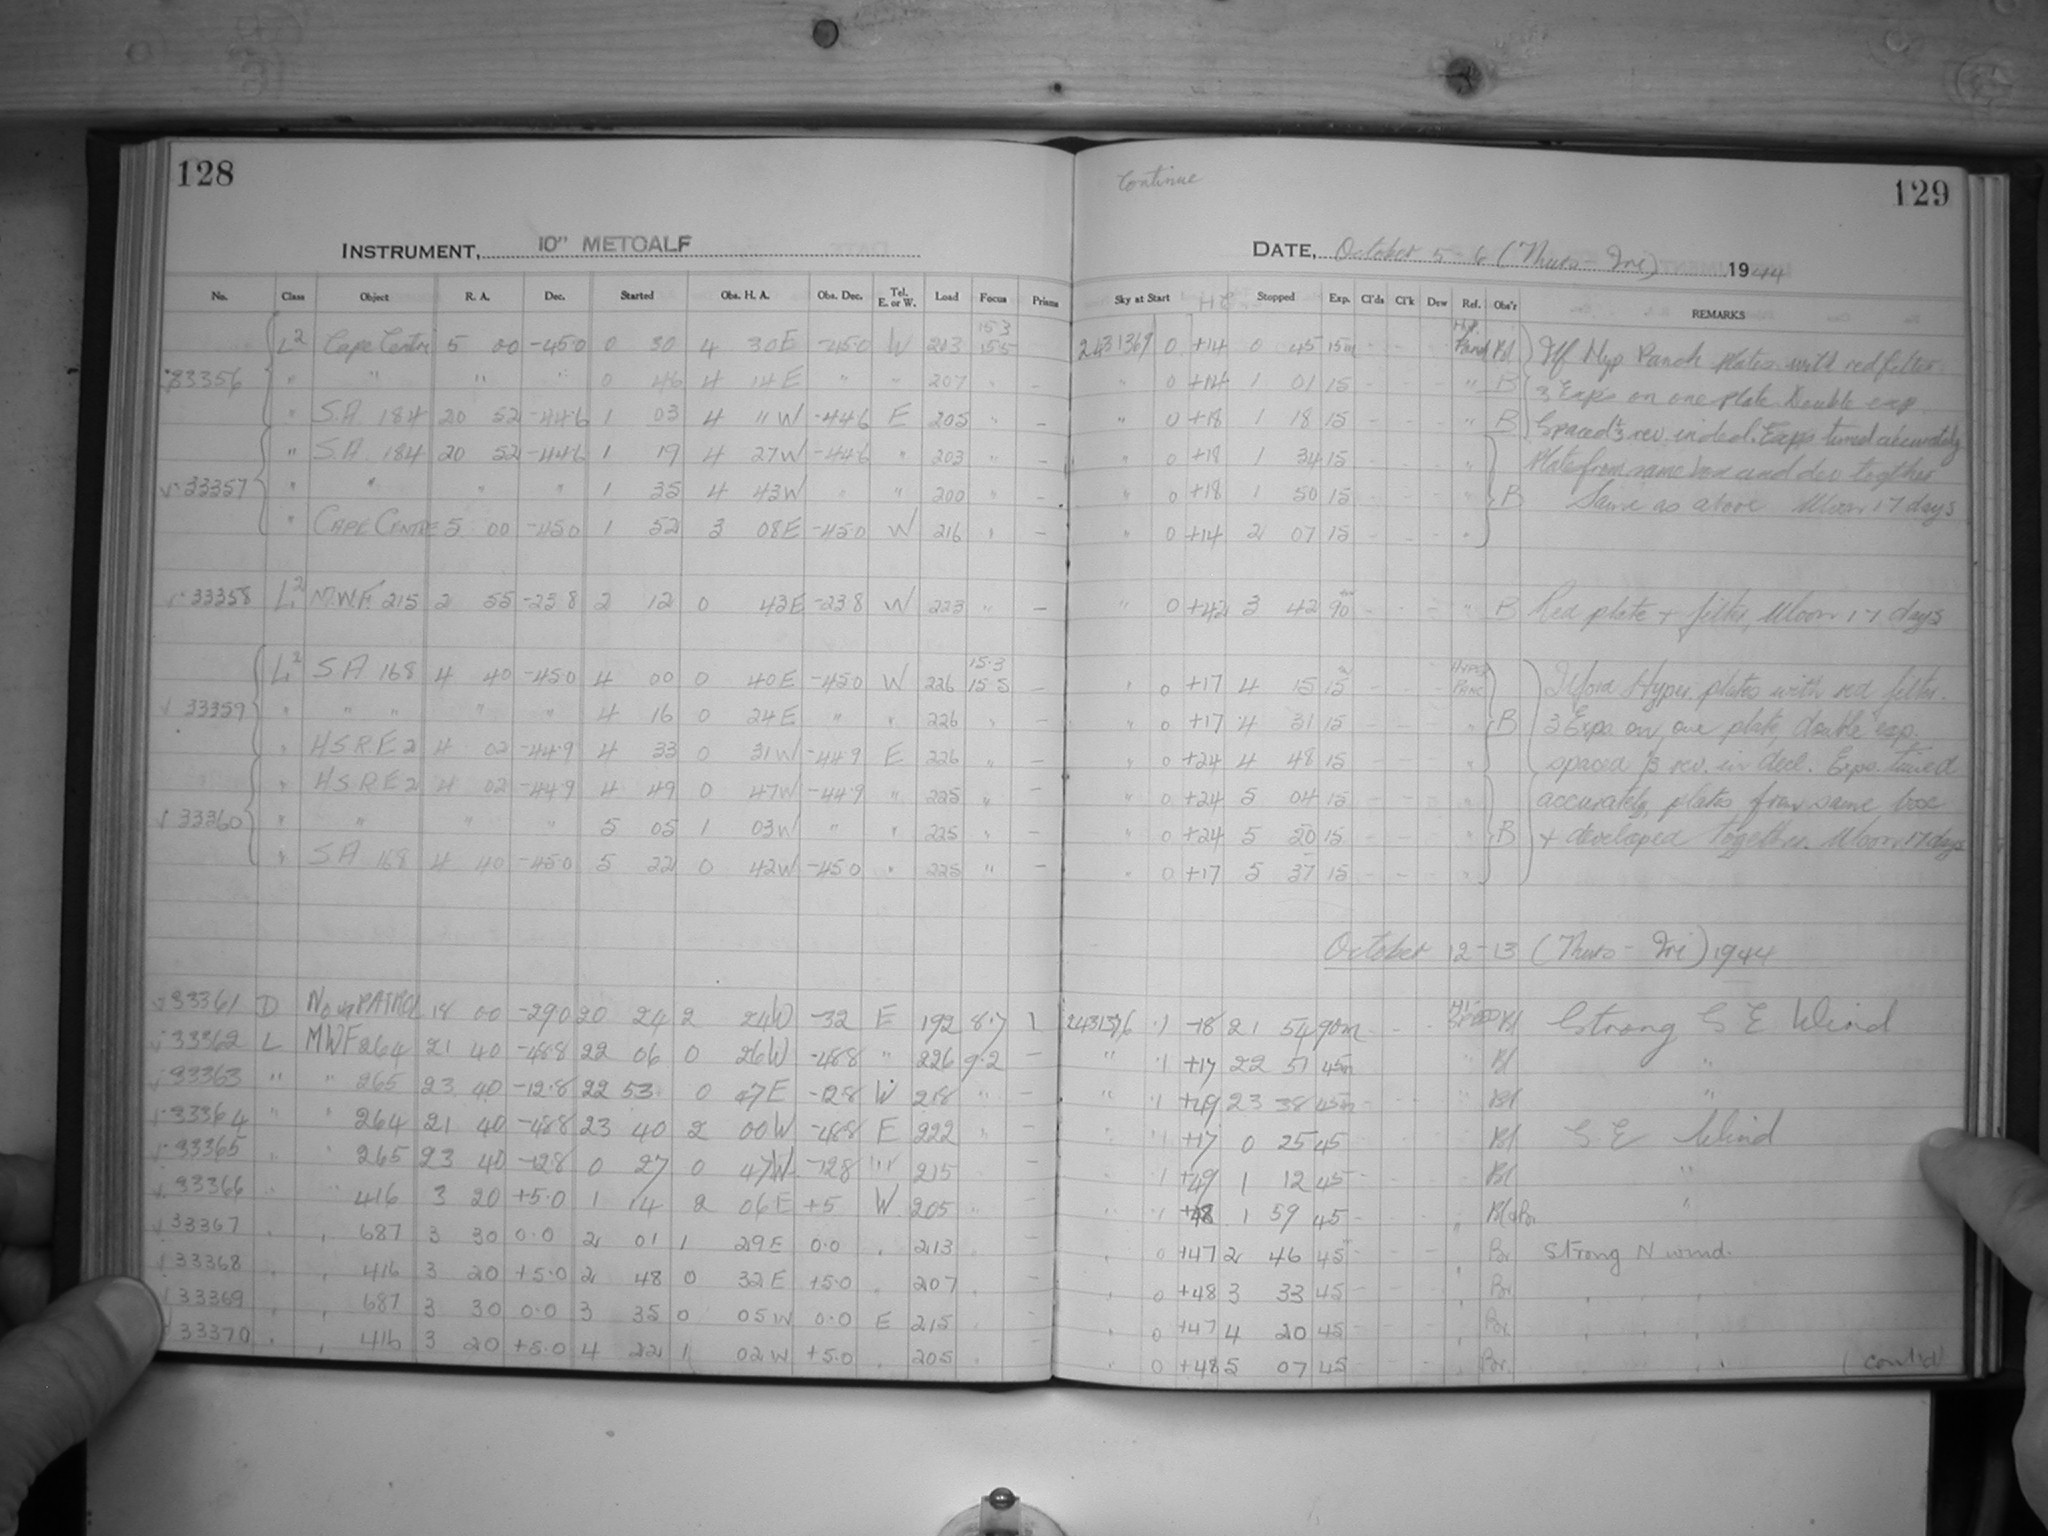 128
Continue
129
INSTRUMENT, 10" METCALF
DATE, October 5-6 (Thurs-Fri) 1944
No. Class Object R. A. Dec. Started Obs. H. A. Obs. Dec. Tel. E. or W. Load Focus Prisms Sky at Start Stopped Exp. Cl'ds Cl'k Dew Ref. Obs'r REMARKS
L2 Cape Centre 5 00 -45.0 0 30 4 30E -45.0 W 213 15.3 15.5 2431369 0 +14 0 45 15m Pand Bl Ilf Hyp Panch plates with red filter
33356 " " " " 0 46 4 14E " " 207 " - " 0 +14 1 01 15 - - - " B 3 Exps on one plate Double exp
" S.A. 184 20 52 -44.6 1 03 4 11W -44.6 E 205 " - " 0 +18 1 18 15 - - - " B Spaced 1/3 rev. in decl. Exps timed accurately
" S.A. 184 20 52 -44.6 1 19 4 27W -44.6 " 203 " - " 0 +18 1 34 15 - - - " Plates from same box and dev together
33357 " " " " 1 35 4 43W " " 200 " - " 0 +18 1 50 15 - - - " B Same as above Moon 17 days
" CAPE CENTRE 5 00 -45.0 1 52 3 08E -45.0 W 216 " - " 0 +14 2 07 15 - - - "
33358 L2 M.W.F. 215 2 55 -23.8 2 12 0 43E -23.8 W 223 " - " 0 +42 3 42 90 - - - " B Red plate + filter, Moon 17 days
L2 S A 168 4 40 -45.0 4 00 0 40E -45.0 W 226 15.3 15.5 - " 0 +17 4 15 15 - - - HYPER PANC Ilford Hyper plates with red filter.
33359 " " " " " 4 16 0 24E " " 226 " - " 0 +17 4 31 15 - - - " B 3 Exps on one plate, double exp.
" HSRE2 4 02 -44.9 4 33 0 31W -44.9 E 226 " - " 0 +24 4 48 15 - - - " spaced 1/3 rev. in decl. Exps. timed
" HSRE2 4 02 -44.9 4 49 0 47W -44.9 " 225 " - " 0 +24 5 04 15 - - - " accurately, plates from same box
33360 " " " " 5 05 1 03W " " 225 " - " 0 +24 5 20 15 - - - " B + developed together. Moon 17 days
" S A 168 4 40 -45.0 5 22 0 42W -45.0 " 225 " - " 0 +17 5 37 15 - - - "
October 12-13 (Thurs-Fri) 1944
33361 D Nova PATROL 18 00 -29.0 20 24 2 24W -32 E 192 8.7 1 2431376 .1 -18 21 54 90m - - HI-SPEED Bl Strong S E Wind
33362 L MWF 264 21 40 -48.8 22 06 0 26W -48.8 " 226 9.2 - " .1 +17 22 51 45m - - " Bl "
33363 " " 265 23 40 -12.8 22 53 0 47E -12.8 W 218 " - " .1 +49 23 38 45m - - " Bl "
33364 " " 264 21 40 -48.8 23 40 2 00W -48.8 E 222 " - " .1 +17 0 25 45 - - - Bl S E Wind
33365 " " 265 23 40 -12.8 0 27 0 47W -12.8 " 215 - .1 +49 1 12 45 - - - Bl "
33366 " " 416 3 20 +5.0 1 14 2 06E +5 W 205 " - " .1 +48 1 59 45 - - - " Bl&Br "
33367 " " 687 3 30 0.0 2 01 1 29E 0.0 " 213 - " 0 +47 2 46 45 - - - " Br. Strong N wind.
33368 " " 416 3 20 +5.0 2 48 0 32E +5.0 " 207 " - " 0 +48 3 33 45 - - - " Br. " " "
33369 " " 687 3 30 0.0 3 35 0 05W 0.0 E 215 " - " 0 +47 4 20 45 - - - " Br. " " "
33370 " " 416 3 20 +5.0 4 22 1 02W +5.0 " 205 " - " 0 +48 5 07 45 - - - " Br. " " (cont'd)